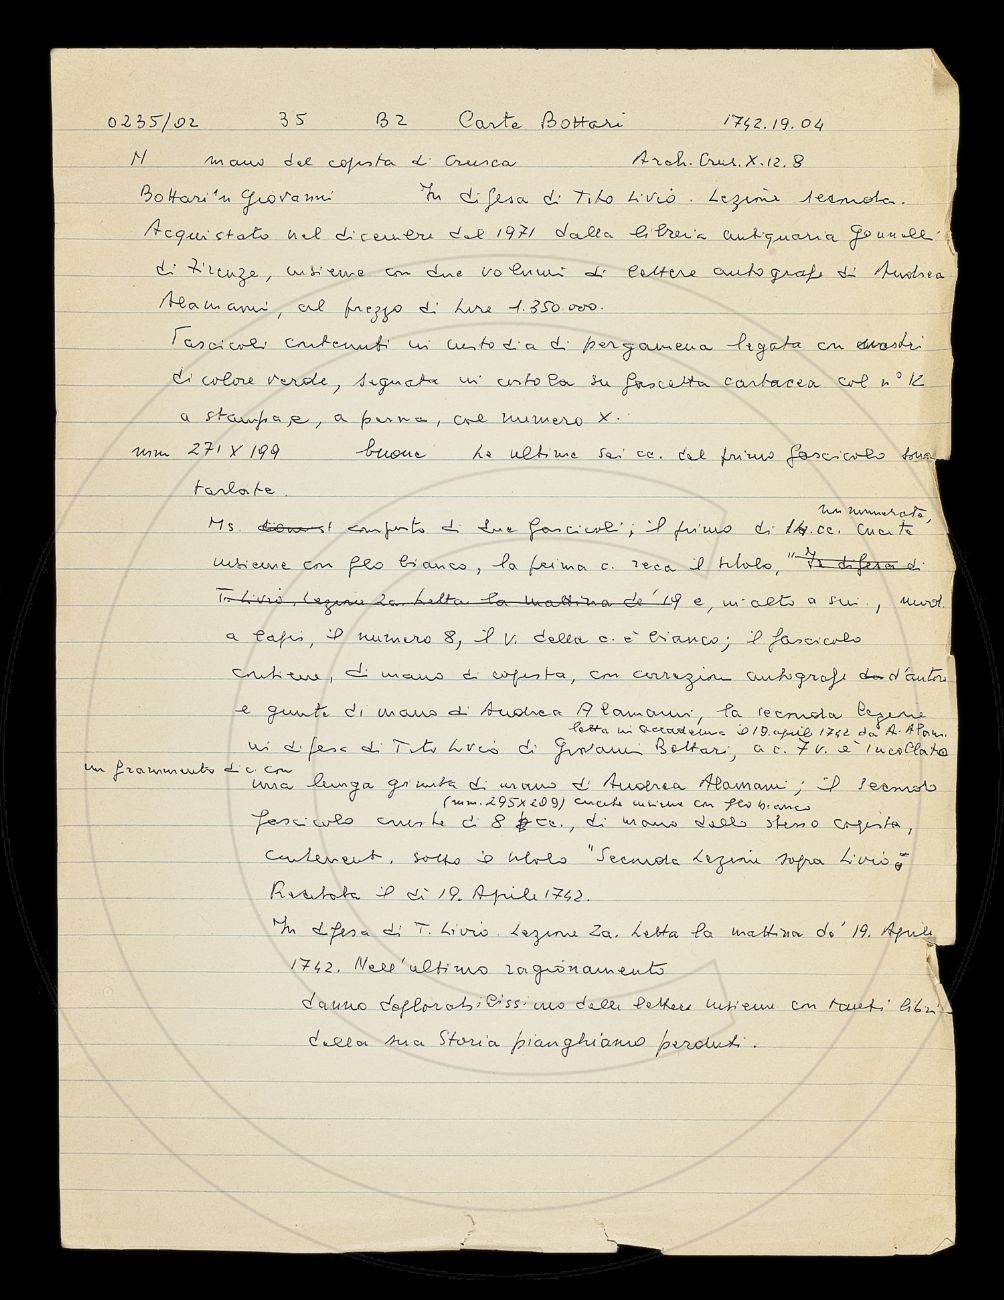 0235/02 35 B2 Carte Bottari 1742.19.04
M mano del copista di Crusca Arch. Crus. X.12.8
Bottari Giovanni In difesa di Tito Livio. Lezione seconda.
Acquistato nel dicembre del 1971 dalla libreria antiquaria Gonnelli
di Firenze, insieme con due volumi di lettere autografe di Andrea
Alamanni, al prezzo di Lire 1.350.000.
Fascicoli contenuti in custodia di pergamena legata con nastri
di colore verde, segnata in costola su fascetta cartacea col n° 12
a stampa e, a penna, col numero X.
mm 271 X 199 buone Le ultime sei cc. del primo fascicolo sono
tarlate.
non numerate,
Ms. composto di due fascicoli; il primo di cc. cucite
insieme con filo bianco, la prima c. reca il titolo, "In difesa di
T. Livio. Lezione 2a. Letta la mattina de' 19 e, in alto a sin.,
a lapis, il numero 8, il v. della c. è bianco; il fascicolo
contiene, di mano di copista, con correzioni autografe d'autore
e giunte di mano di Andrea Alamanni, la seconda lezione
letta in Accademia il 19 aprile 1742 da A. Alam.
in difesa di Tito Livio di Giovanni Bottari, a c. 7v. è incollato
un frammento di c. con
una lunga giunta di mano di Andrea Alamanni; il secondo
(mm. 295x209) cucite insieme con filo bianco
fascicolo consta di 8 cc., di mano dello stesso copista,
contenent. sotto il titolo "Seconda Lezione sopra Livio
Recitata il dì 19. Aprile 1742.
In difesa di T. Livio. Lezione 2a. Letta la mattina de' 19. Aprile
1742. Nell'ultimo ragionamento
danno deplorabilissimo delle lettere insieme con tanti libri
della sua Storia pianghiamo perduti.